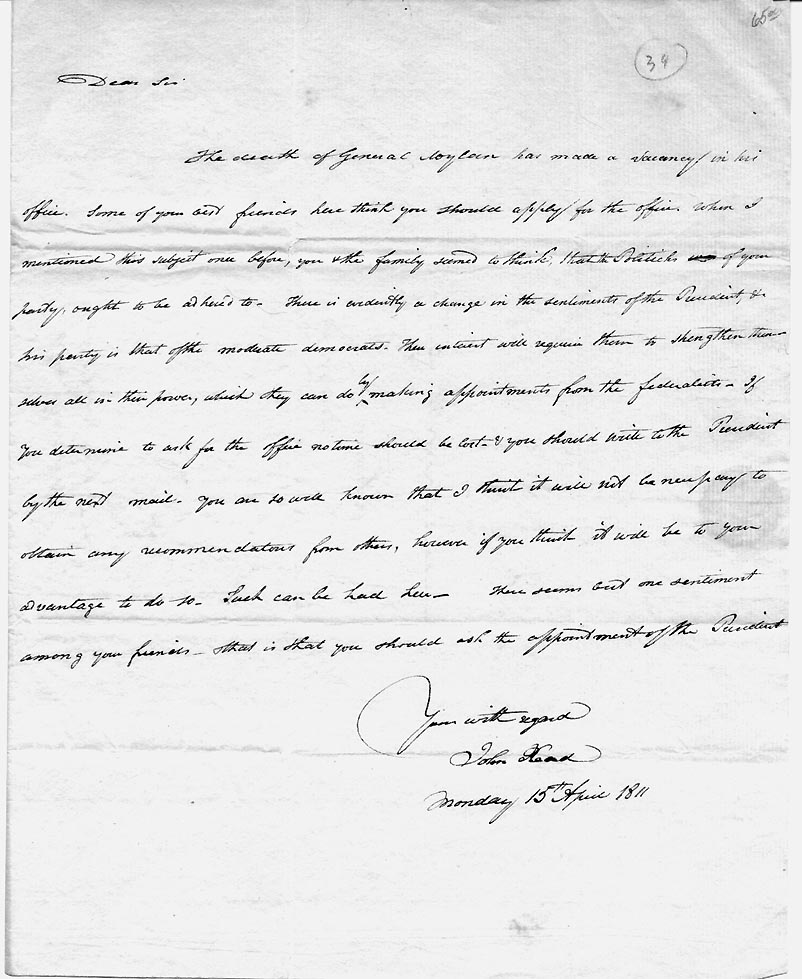 65.00
39
Dear Sir
The death of General Moylan has made a vacancy in his
office. Some of your best friends here think you should apply for the office. When I
mentioned this subject once before, you & the family seemed to think, that the Politicks of your
party, ought to be adhered to - There is evidently a change in the sentiments of the President, &
his party is that of the moderate democrats. Their interest will require them to strengthen them-
selves all in their power, which they can do by making appointments from the federalists - If
you determine to ask for the office no time should be lost - & you should write to the President
by the next mail - You are so well known that I think it will not be necessary to
obtain any recommendations from others, however if you think it will be to your
advantage to do so - Such can be had here - There seems but one sentiment
among your friends - that is that you should ask the appointment of the President
Yours with regard
John Read
Monday 15th April 1811